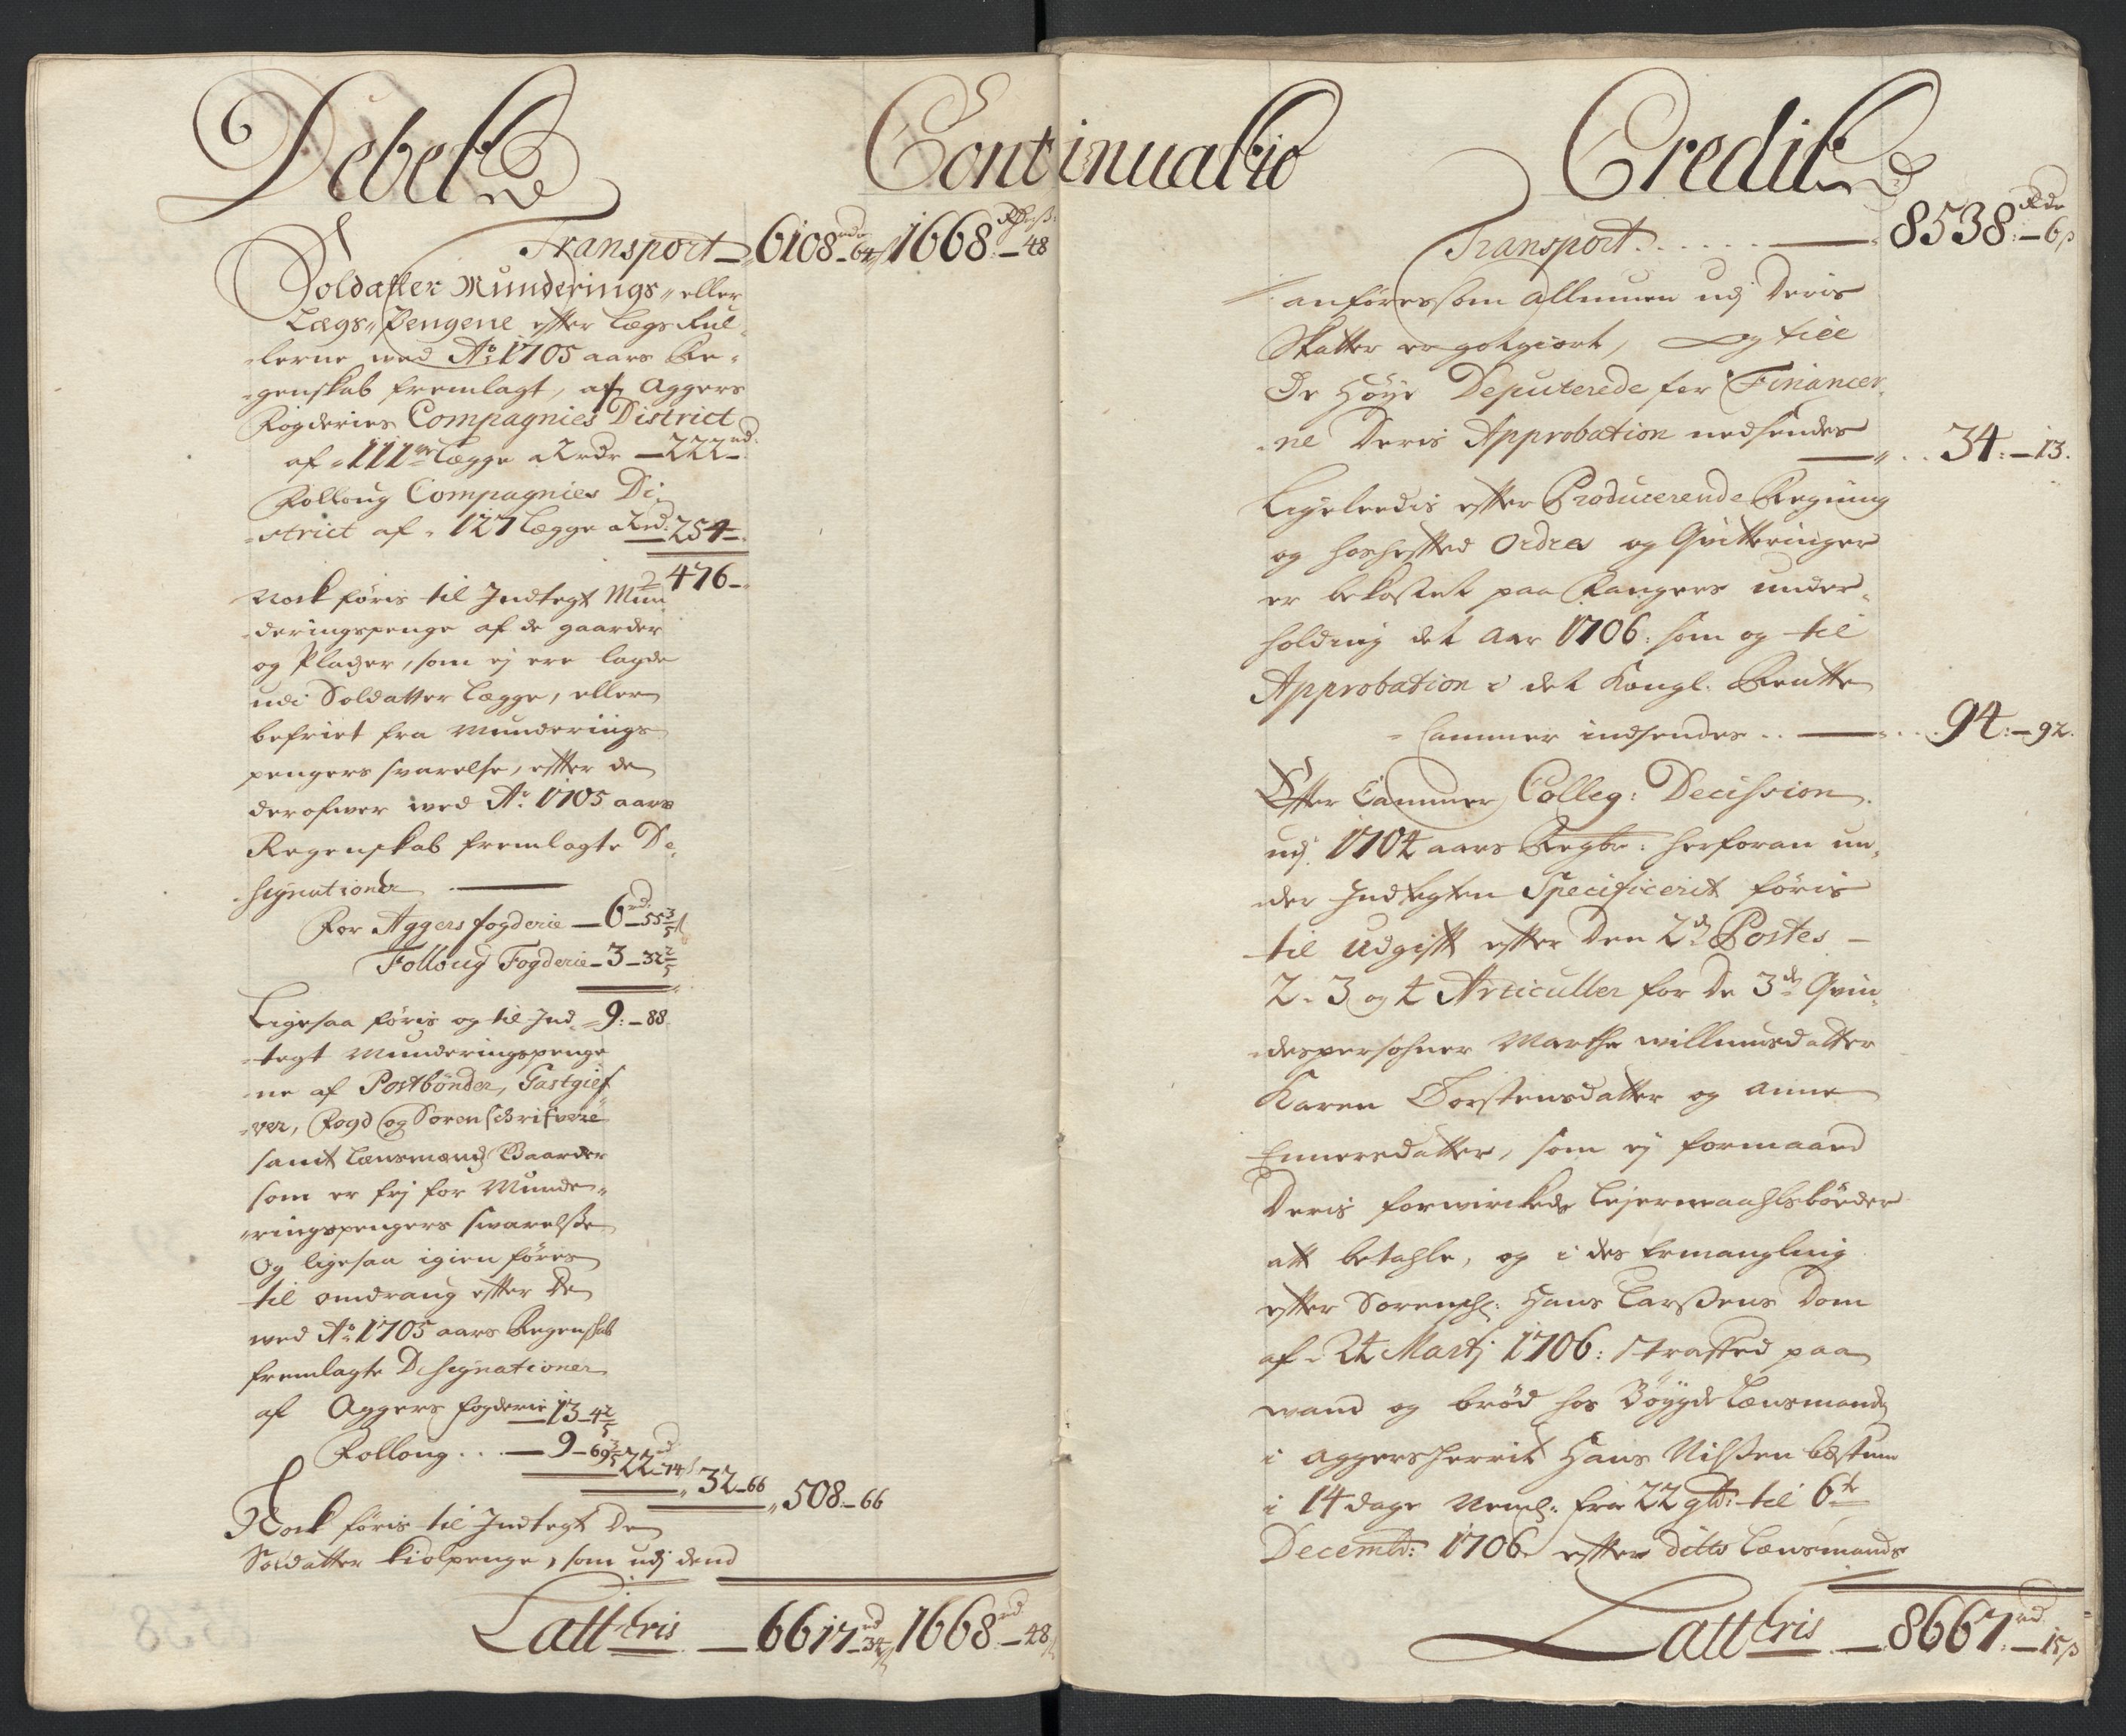 Debet
Transport 6108 rdr 64 ß 1668 48
Soldatter Munderings eller
Lægs Pengene efter Lægs Rul-
lerne med Ao 1705 aars Re-
genskab fremlagt, af Aggers
Fogderies Compagnies District
af 111 Lægge a 2 rdr 222 rd
Folloug Compagnies Di-
strict af 127 Lægge a 2 rd 254
476
Nock føris til Indtegt Mun-
deringspenge af de gaarder
og Pladzer, som ej ere lagde
udi Soldatter Lægge, eller
befriet fra Munderings
pengers svarelse, efter de
derofwer med Ao 1705 aars
Regenskab fremlagte De-
signationer
For Aggers fogderie 6 rd 55 3/5 ß
Folloug Fogderie 3 32 2/5
Ligesaa føris og til Ind- 9 88
tegt Munderingspenge
ne af Postbønder, Gastgief-
ver, Fogd og Sorenschrifvere
samt Lænsmænds Gaarder
som er frj for Munde-
ringspengers svarelse
Og ligesaa igien føres
til omdrang efter De
med Ao 1705 aars Regenskab
fremlagte Designationer
af Aggers fogderie 13 4 2/5
Folloug 9 69 3/5 22 rd 74 ß 32 66 508 66
Nock føris til Indtegt De
Soldatter kiolpenge, som udj dend
Lattris 6617 rd 34 ß 1668 rd 48 ß
Continuatio
Credit
Transport 8538 Rdr 6 ß
anføres som Allmuen udj Deris
Skatter er gotgiort, og till
De Høye Deputerede for Financer-
ne Deris Approbation nedsendes 34 13
Ligeleedis efter Producerende Regning
og hoshefted Ordre og Qvitteringer
er bekostet paa Fangers under-
holding det Aar 1706 som og til
Approbation i det Kongl. Rentte
Cammer indsendes 94 92
Efter Cammer Colleg: Decission
udj 1704 aars Regsk: herforan un-
der Indtegten Specificerit føris
til Udgift efter Den 2de Postes
2. 3 og 4 Articuller for De 3de Qvin-
despersohner Marthe Willumsdatter
Karen Torstensdatter og Anne
Ennersdatter, som ej formaaed
Deris forwirkede Lejermaahlsbøder
att betahle, og i des Ermangling
efter Sorensch: Hans Larßens Dom
af 24 Martj 1706: straffed paa
wand og brød hos Bøyde Lænsmand
i Aggersherrit Hans Nilßen Bestum
i 14 dage Neml: fra 22 9br til 6te
Decembr: 1706 efter ditto Lænsmands
Lattris 8667 rd 15 ß